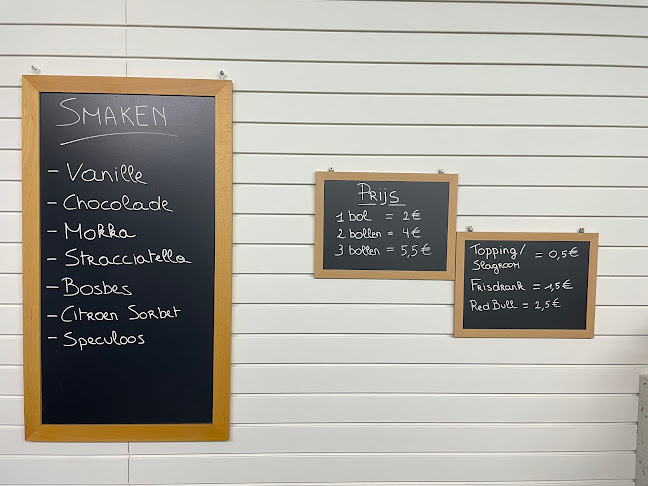 SMAKEN
- Vanille
- Chocolade
- Mokka
- Stracciatella
- Bosbes
- Citroen Sorbet
- Speculoos
Prijs
1 bol = 2€
2 bollen = 4€
3 bollen = 5,5€
Topping/ = 0,5€
Slagroom
Frisdrank = 1,5€
Red Bull = 2,5€